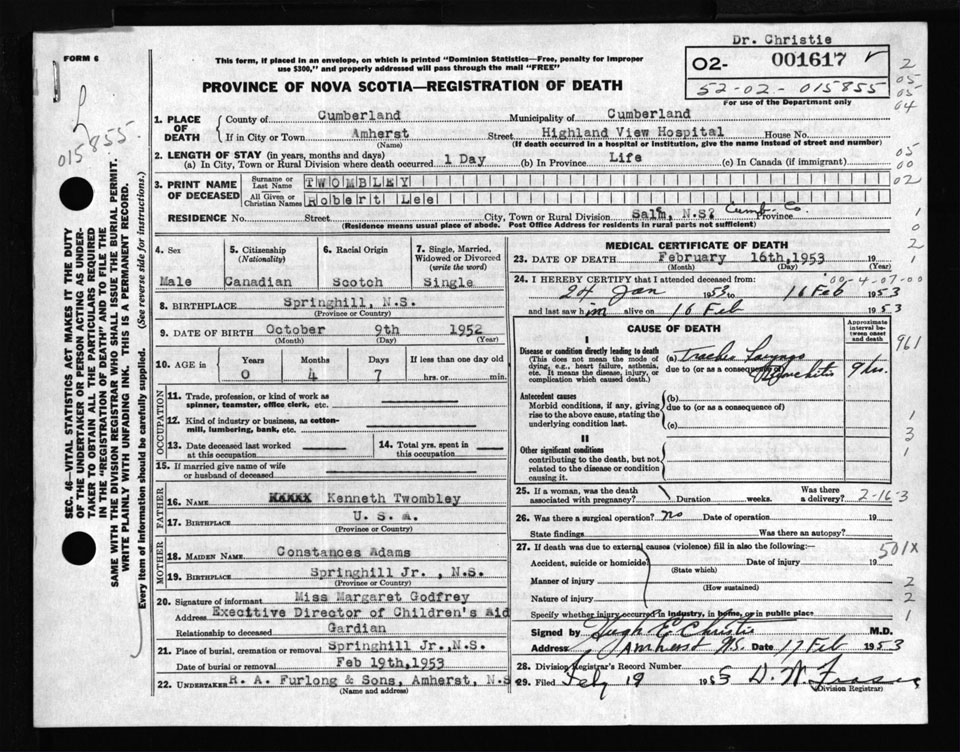 Dr. Christie
FORM 6
This form, if placed in an envelope, on which is printed "Dominion Statistics—Free, penalty for improper
use $300," and properly addressed will pass through the mail "FREE"
02- 001617
52-02-015855
For use of the Department only
PROVINCE OF NOVA SCOTIA—REGISTRATION OF DEATH
2
05
05
04
05
00
02
1
0
2
1
015855.
SEC. 46—VITAL STATISTICS ACT MAKES IT THE DUTY
OF THE UNDERTAKER OR PERSON ACTING AS UNDER-
TAKER TO OBTAIN ALL THE PARTICULARS REQUIRED
IN THE "REGISTRATION OF DEATH" AND TO FILE THE
SAME WITH THE DIVISION REGISTRAR WHO SHALL ISSUE THE BURIAL PERMIT.
WRITE PLAINLY WITH UNFADING INK. THIS IS A PERMANENT RECORD.
Every item of information should be carefully supplied. (See reverse side for instructions.)
1. PLACE OF DEATH
County of Cumberland Municipality of Cumberland
If in City or Town Amherst Street Highland View Hospital House No.
(Name) (If death occurred in a hospital or institution, give the name instead of street and number)
2. LENGTH OF STAY (in years, months and days)
(a) In City, Town or Rural Division where death occurred 1 Day (b) In Province Life (c) In Canada (if immigrant)
3. PRINT NAME OF DECEASED
Surname or Last Name TWOMBLEY
All Given or Christian Names Robert Lee
RESIDENCE No. Street City, Town or Rural Division Salm, N.S? Cumb. Co. Province
(Residence means usual place of abode. Post Office Address for residents in rural parts not sufficient)
4. Sex 5. Citizenship (Nationality) 6. Racial Origin 7. Single, Married, Widowed or Divorced (write the word)
Male Canadian Scotch Single
8. BIRTHPLACE Springhill, N.S.
(Province or Country)
9. DATE OF BIRTH October 9th 1952
(Month) (Day) (Year)
10. AGE in Years Months Days If less than one day old
0 4 7 hrs. or min.
OCCUPATION
11. Trade, profession, or kind of work as
spinner, teamster, office clerk, etc.
12. Kind of industry or business, as cotton-
mill, lumbering, bank, etc.
13. Date deceased last worked
at this occupation
14. Total yrs. spent in
this occupation
15. If married give name of wife
or husband of deceased
FATHER
16. NAME XXXXX Kenneth Twombley
17. BIRTHPLACE U. S. A.
(Province or Country)
MOTHER
18. MAIDEN NAME Constances Adams
19. BIRTHPLACE Springhill Jr. , N.S.
(Province or Country)
20. Signature of informant Miss Margaret Godfrey
Address Execitive Director of Children's Aid
Relationship to deceased Gardian
21. Place of burial, cremation or removal Springhill Jr.,N.S.
Date of burial or removal Feb 19th,1953
22. UNDERTAKER R. A. Furlong & Sons, Amherst, N.S
(Name and address)
MEDICAL CERTIFICATE OF DEATH
23. DATE OF DEATH February 16th,1953 19
(Month) (Day) (Year)
24. I HEREBY CERTIFY that I attended deceased from: 00-4-07-00
24 Jan 1953 to 16 Feb 1953
and last saw him alive on 16 Feb 1953
CAUSE OF DEATH
Approximate
interval be-
tween onset
and death
I
Disease or condition directly leading to death
(This does not mean the mode of
dying, e.g., heart failure, asthenia,
etc. It means the disease, injury, or
complication which caused death.)
(a) Tracheo Laryngo
due to (or as a consequence of) Bronchitis 9 hrs.
961
Antecedent causes
Morbid conditions, if any, giving
rise to the above cause, stating the
underlying condition last.
(b)
due to (or as a consequence of)
(c)
1
3
II
Other significant conditions
contributing to the death, but not
related to the disease or condition
causing it.
1
25. If a woman, was the death
associated with pregnancy? Duration weeks. Was there
a delivery? 2-16-3
26. Was there a surgical operation? No Date of operation 19
State findings Was there an autopsy?
27. If death was due to external causes (violence) fill in also the following:—
501X
Accident, suicide or homicide? Date of injury 19
(State which)
Manner of injury 2
(How sustained)
Nature of injury 2
Specify whether injury occurred in industry, in home, or in public place 1
Signed by Hugh E Christie M.D.
Address Amherst N.S. Date 17 Feb 1953
28. Division Registrar's Record Number
29. Filed Feby 19 1953 D. W. Fraser
(Division Registrar)